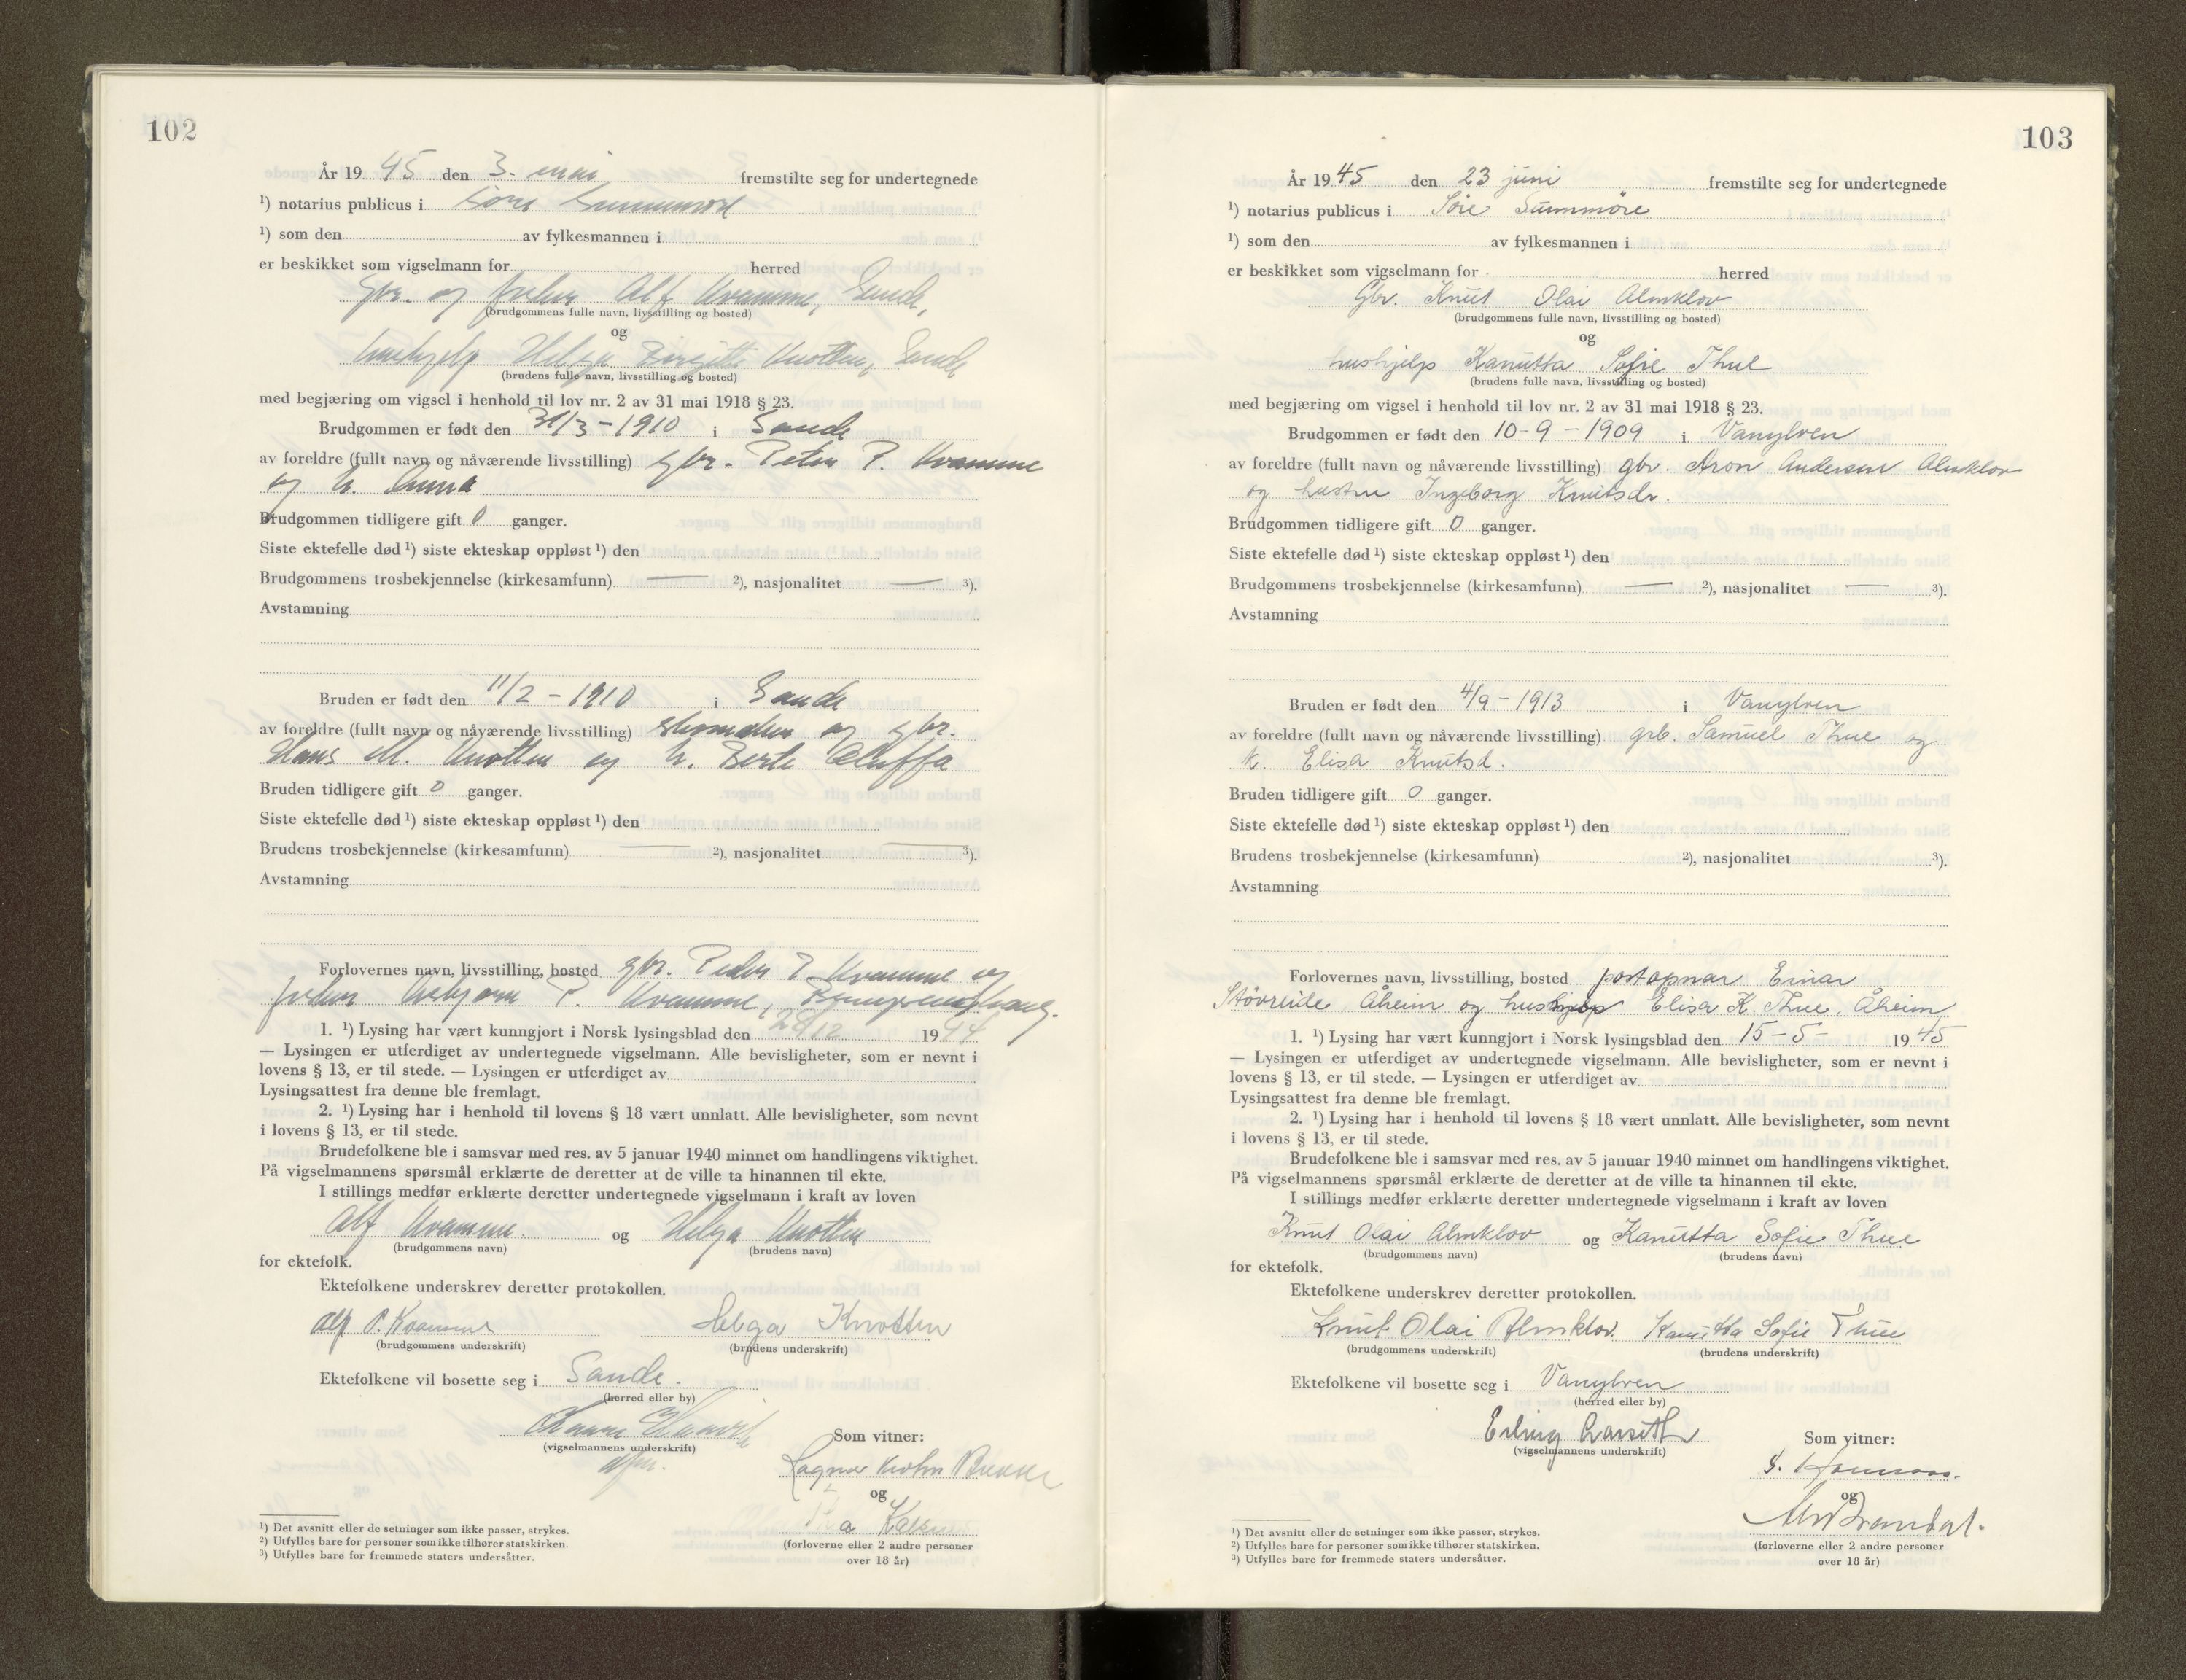 102
År 19 45 den 3. mai fremstilte seg for undertegnede
¹) notarius publicus i Søre Sunnmøre
¹) som den av fylkesmannen i
er beskikket som vigselmann for herred
Gbr. og fisker Alf Kvamme, Sande,
(brudgommens fulle navn, livsstilling og bosted)
og
hushjelp Helga Birgitte Knotten, Sande
(brudens fulle navn, livsstilling og bosted)
med begjæring om vigsel i henhold til lov nr. 2 av 31 mai 1918 § 23.
Brudgommen er født den 31/3 - 1910 i Sande
av foreldre (fullt navn og nåværende livsstilling) gbr. Peter P. Kvamme
og h. Anna
Brudgommen tidligere gift 0 ganger.
Siste ektefelle død ¹) siste ekteskap oppløst ¹) den
Brudgommens trosbekjennelse (kirkesamfunn) — ²), nasjonalitet — ³).
Avstamning
Bruden er født den 11/2 - 1910 i Sande
av foreldre (fullt navn og nåværende livsstilling) og gbr.
Hans M. Knotten og h. Berte Oluffa
Bruden tidligere gift 0 ganger.
Siste ektefelle død ¹) siste ekteskap oppløst ¹) den
Brudens trosbekjennelse (kirkesamfunn) — ²), nasjonalitet — ³).
Avstamning
Forlovernes navn, livsstilling, bosted gbr. Peder P. Kvamme og
fisker Asbjørn P. Kvamme,
1. ¹) Lysing har vært kunngjort i Norsk lysingsblad den 28/12 1944
— Lysingen er utferdiget av undertegnede vigselmann. Alle bevisligheter, som er nevnt i
lovens § 13, er til stede. — Lysingen er utferdiget av
Lysingsattest fra denne ble fremlagt.
2. ¹) Lysing har i henhold til lovens § 18 vært unnlatt. Alle bevisligheter, som nevnt
i lovens § 13, er til stede.
Brudefolkene ble i samsvar med res. av 5 januar 1940 minnet om handlingens viktighet.
På vigselmannens spørsmål erklærte de deretter at de ville ta hinannen til ekte.
I stillings medfør erklærte deretter undertegnede vigselmann i kraft av loven
Alf Kvamme. og Helga Knotten
(brudgommens navn) (brudens navn)
for ektefolk.
Ektefolkene underskrev deretter protokollen.
Alf P. Kvamme Helga Knotten
(brudgommens underskrift) (brudens underskrift)
Ektefolkene vil bosette seg i Sande.
(herred eller by)
(vigselmannens underskrift)
Som vitner:
Ragnar
og
(forloverne eller 2 andre personer
over 18 år)
¹) Det avsnitt eller de setninger som ikke passer, strykes.
²) Utfylles bare for personer som ikke tilhører statskirken.
³) Utfylles bare for fremmede staters undersåtter.
103
År 19 45 den 23 juni fremstilte seg for undertegnede
¹) notarius publicus i Søre Sunnmøre
¹) som den av fylkesmannen i
er beskikket som vigselmann for herred
Gbr. Knut Olai Almklov
(brudgommens fulle navn, livsstilling og bosted)
og
hushjelp Kanutta Sofie Thue
(brudens fulle navn, livsstilling og bosted)
med begjæring om vigsel i henhold til lov nr. 2 av 31 mai 1918 § 23.
Brudgommen er født den 10-9-1909 i Vanylven
av foreldre (fullt navn og nåværende livsstilling) gbr. Aron Andersen Almklov
og hustru Ingeborg Knutsdr.
Brudgommen tidligere gift 0 ganger.
Siste ektefelle død ¹) siste ekteskap oppløst ¹) den
Brudgommens trosbekjennelse (kirkesamfunn) — ²), nasjonalitet — ³).
Avstamning
Bruden er født den 4/9-1913 i Vanylven
av foreldre (fullt navn og nåværende livsstilling) grb. Samuel Thue og
h. Elisa Knutsd.
Bruden tidligere gift 0 ganger.
Siste ektefelle død ¹) siste ekteskap oppløst ¹) den
Brudens trosbekjennelse (kirkesamfunn) ²), nasjonalitet ³).
Avstamning
Forlovernes navn, livsstilling, bosted postopnar Einar
Støvreide, Åheim og hushjelp Elisa K. Thue, Åheim
1. ¹) Lysing har vært kunngjort i Norsk lysingsblad den 15-5- 1945
— Lysingen er utferdiget av undertegnede vigselmann. Alle bevisligheter, som er nevnt i
lovens § 13, er til stede. — Lysingen er utferdiget av
Lysingsattest fra denne ble fremlagt.
2. ¹) Lysing har i henhold til lovens § 18 vært unnlatt. Alle bevisligheter, som nevnt
i lovens § 13, er til stede.
Brudefolkene ble i samsvar med res. av 5 januar 1940 minnet om handlingens viktighet.
På vigselmannens spørsmål erklærte de deretter at de ville ta hinannen til ekte.
I stillings medfør erklærte deretter undertegnede vigselmann i kraft av loven
Knut Olai Almklov og Kanutta Sofie Thue
(brudgommens navn) (brudens navn)
for ektefolk.
Ektefolkene underskrev deretter protokollen.
Knut Olai Almklov Kanutta Sofie Thue
(brudgommens underskrift) (brudens underskrift)
Ektefolkene vil bosette seg i Vanylven
(herred eller by)
Erling
(vigselmannens underskrift)
Som vitner:
og
Brandal.
(forloverne eller 2 andre personer
over 18 år)
¹) Det avsnitt eller de setninger som ikke passer, strykes.
²) Utfylles bare for personer som ikke tilhører statskirken.
³) Utfylles bare for fremmede staters undersåtter.